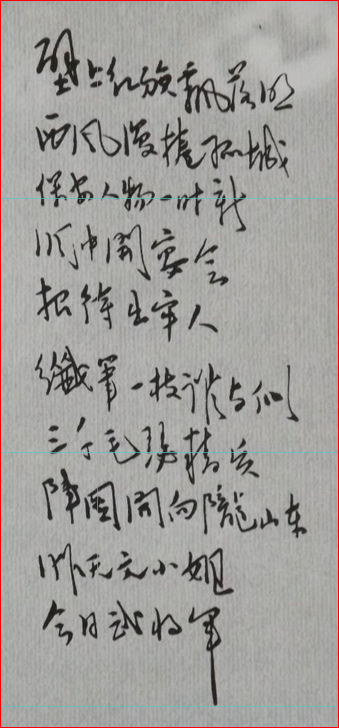 壁上红旗飘落照
西风漫卷孤城
保安人物一时新
洞中开宴会
招待出牢人
纤笔一枝谁与似
三千毛瑟精兵
阵图开向陇山东
昨天文小姐
今日武将军